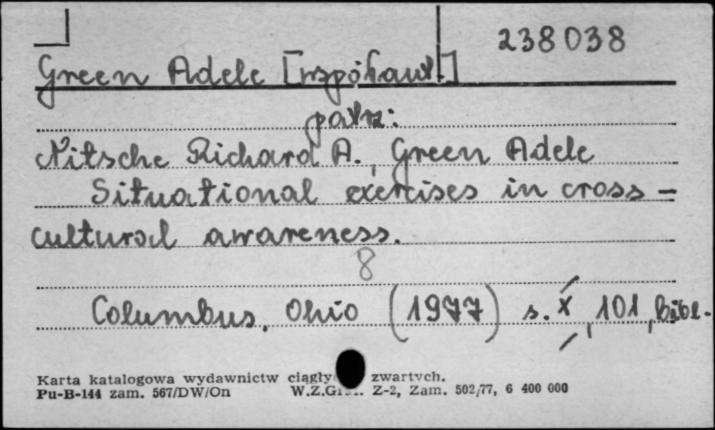 238038
Green Adele [współaut.]
patrz:
Nitsche Richard A., Green Adele
Situational exercises in cross-
cultural awareness.
8
Columbus, Ohio (1977) s. X, 101, bibl.
Karta katalogowa wydawnictw zwartych.
Pu-B-144 zam. 567/DW/On W.Z.Graf. Z-2, Zam. 502/77, 6 400 000